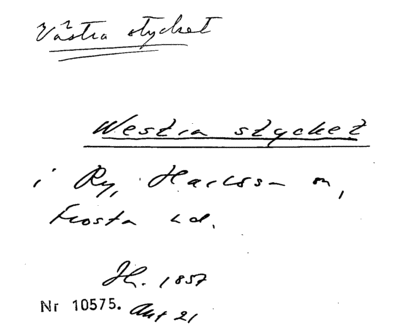 Västra stycket
Westra stycket
i Ry, Harlösa sn,
Frosta hd.
Jh. 1857
Nr 10575. Akt 21